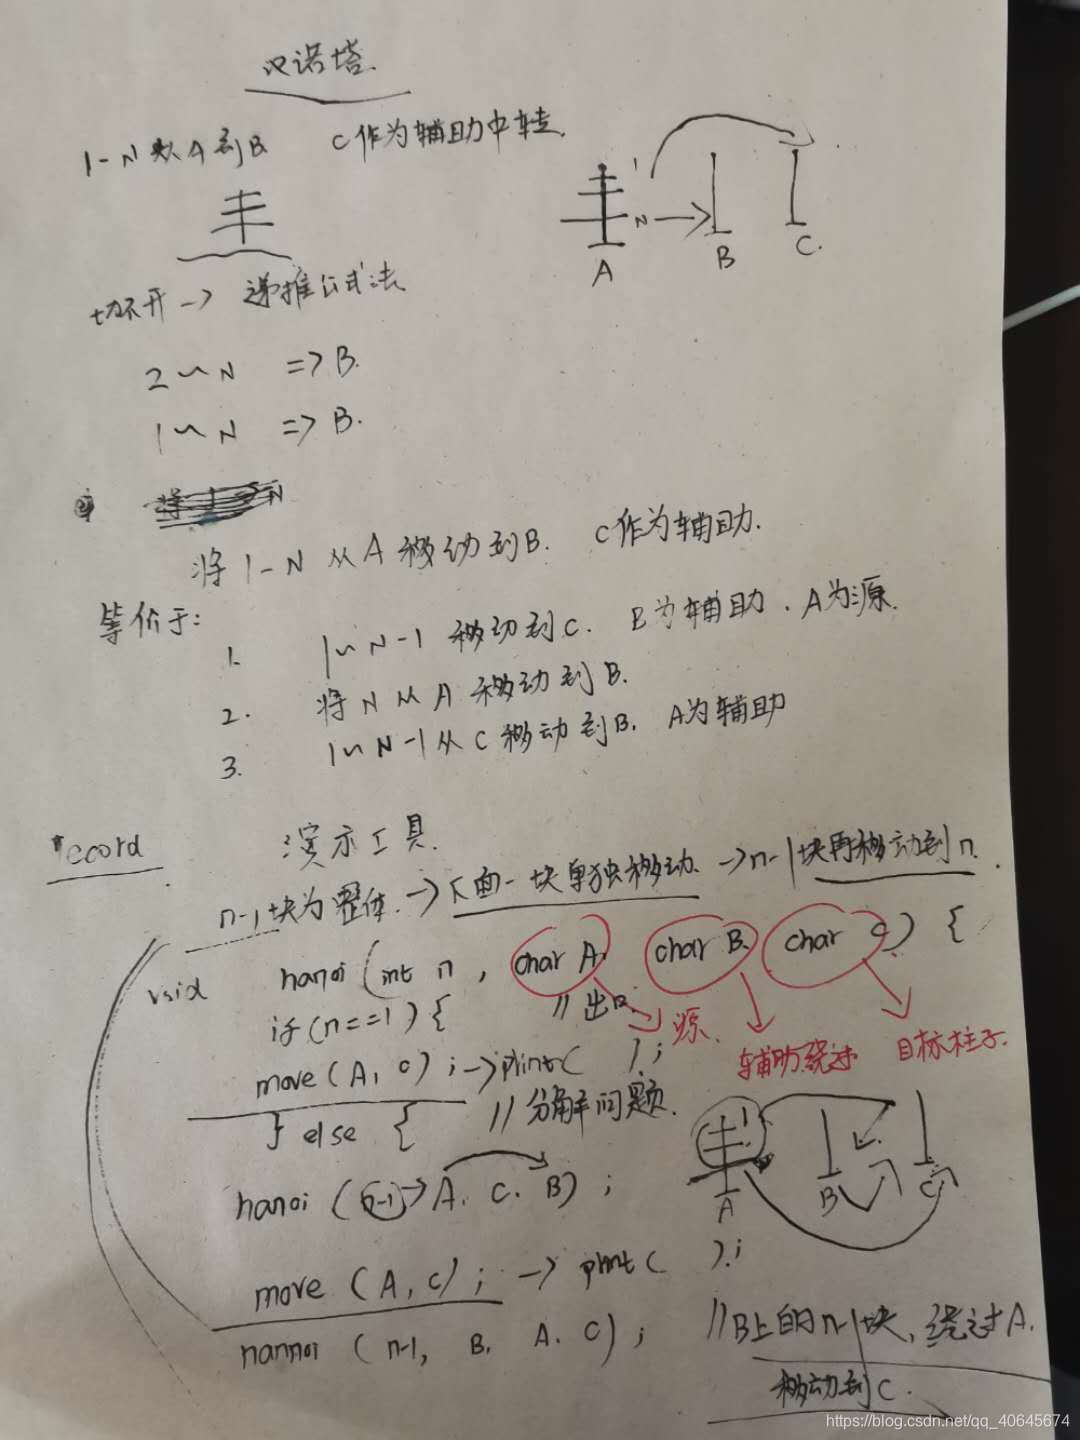 汉诺塔.
1-N 从A到B C作为辅助中转.
1
N
A B C.
切不开 -> 递推公式法
2~N => B.
1~N => B.
N
将 1-N 从A 移动到B. C作为辅助.
等价于:
1. 1~N-1 移动到C. B为辅助. A为源.
2. 将N从A 移动到B.
3. 1~N-1从C移动到B. A为辅助
演示工具.
n-1块为整体. -> 下面一块单独移动. -> n-1块再移动到n.
void hanoi (int n, char A, char B, char C) {
if (n==1) { // 出口
源. 辅助.绕过 目标柱子.
move (A, C) ; -> print( ).;
} else { // 分解问题.
1
A B C
hanoi ( n-1 -> A. C. B) ;
move (A, C) ; -> print( ).;
hannoi ( n-1, B, A. C) ; //B上的n-1块, 绕过A.
移动到C.
https://blog.csdn.net/qq_40645674